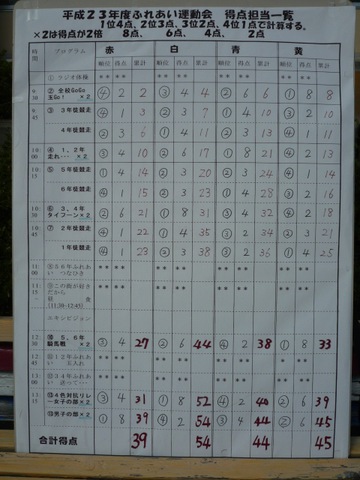 平成23年度ふれあい運動会 得点担当一覧
1位4点、2位3点、3位2点、4位1点で計算する。
×2は得点が2倍 8点、 6点、 4点、 2点
時間 プログラム 赤 白 青 黄
順位 得点 累計 順位 得点 累計 順位 得点 累計 順位 得点 累計
① ラジオ体操 ** ** ** ** ** ** ** **
9:30 ② 全校GoGo玉Go! ×2 ④ 2 2 ③ 4 4 ② 6 6 ① 8 8
9:45 ③ 3年徒競走 ④ 1 3 ② 3 7 ① 4 10 ③ 2 10
4年徒競走 ② 3 6 ① 4 11 ④ 3 13 ④ 1 11
10:00 ④ 1、2年走れ… ×2 ③ 4 10 ② 6 17 ① 8 21 ④ 2 13
10:15 ⑤ 5年徒競走 ① 4 14 ② 3 20 ② 3 24 ④ 1 14
6年徒競走 ④ 1 15 ② 3 23 ① 4 28 ③ 2 16
10:30 ⑥ 3、4年タイフーン ×2 ② 6 21 ① 8 31 ③ 4 32 ④ 2 18
10:45 ⑦ 2年徒競走 ④ 1 22 ① 4 35 ③ 2 34 ② 3 21
1年徒競走 ④ 1 23 ② 3 38 ③ 2 36 ① 4 25
11:00 ⑧56年ふれあい つなひき ** ** ** ** ** ** ** **
11:15 ⑨この曲が好きだから ** ** ** ** ** ** ** **
昼食
(11:30-12:45)
エキシビジョン
12:30 ⑩ 5、6年騎馬戦 ×2 ③ 4 27 ② 6 44 ④ 2 38 ① 8 33
12:45 ⑪12年ふれあい 玉入れ ** ** ** ** ** ** * **
13:00 ⑫34年ふれあい 送って… ** ** ** ** ** ** ** **
13:15 ⑬4色対抗リレー女子の部 ×2 ③ 4 31 ① 8 52 ④ 2 40 ② 6 39
⑬男子の部 ×2 ① 8 39 ④ 2 54 ③ 4 44 ② 6 45
合計得点 39 54 44 45